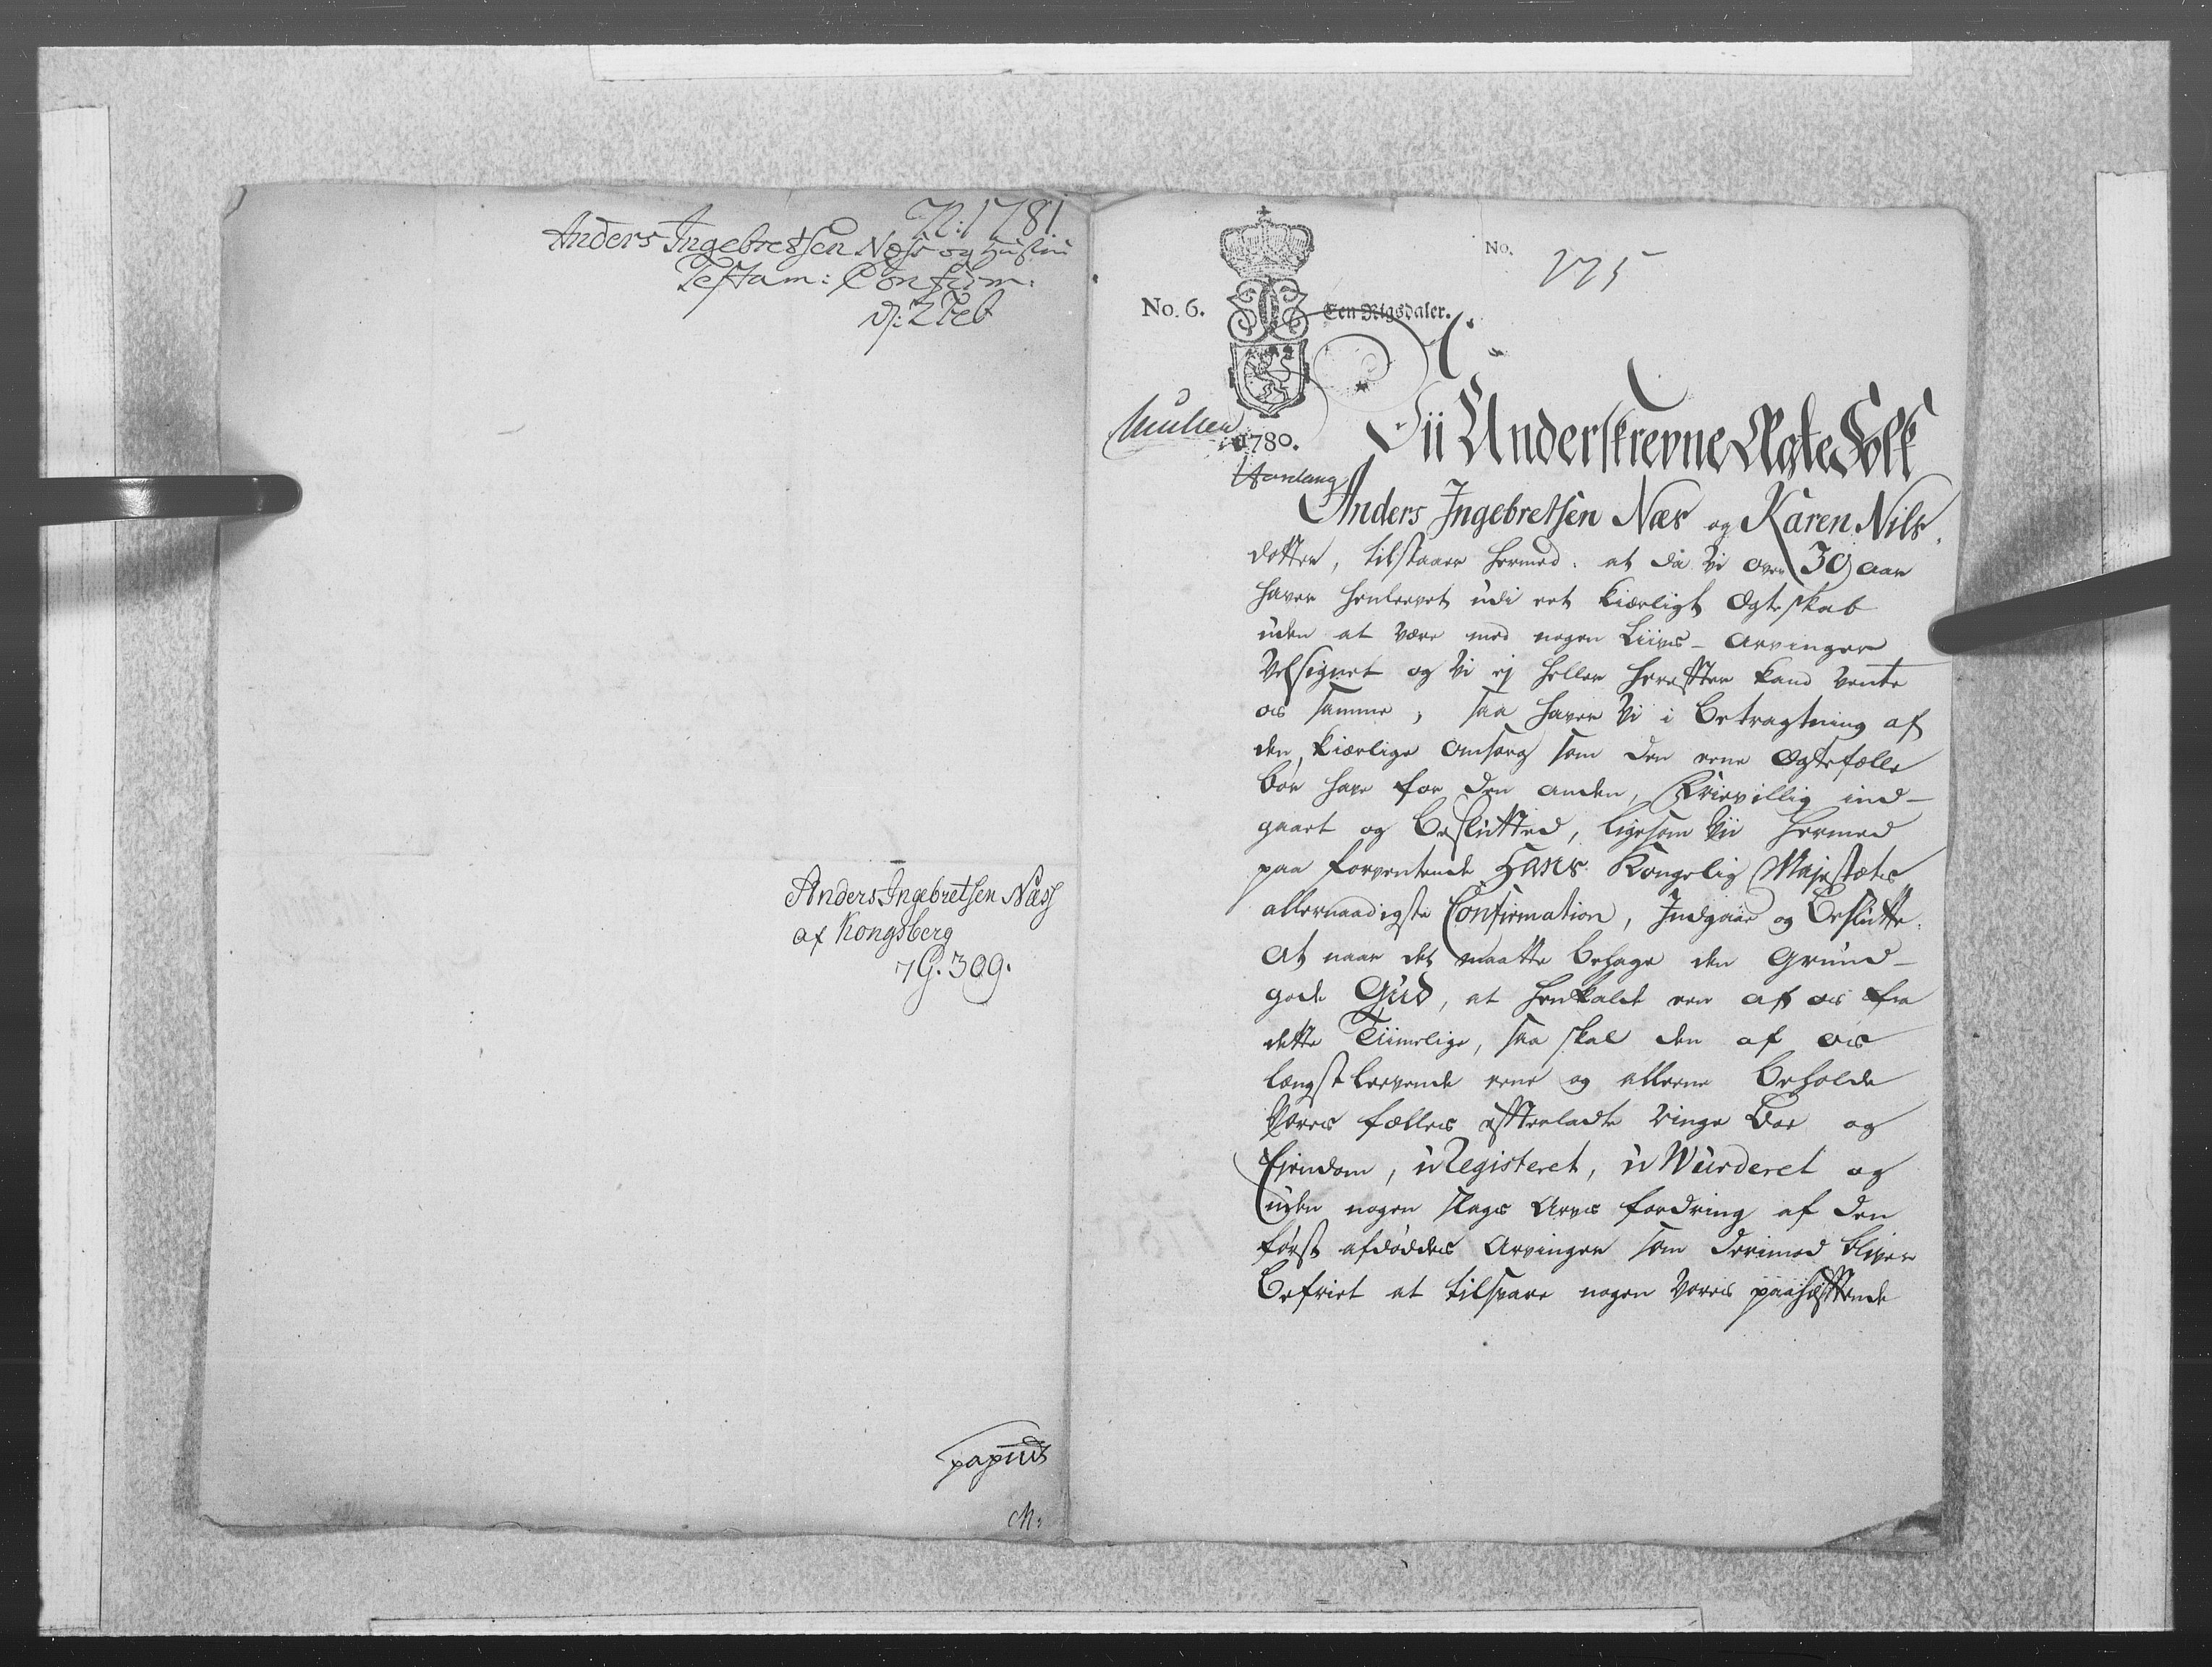 N: 1781
Anders Ingebretsen Næss og Hustru
Testam: Confirm:
d: 2 Feb
Anders Ingebretsen Næss
af Kongsberg
7 G. 309.
M:
No.
No. 6.
Een Rigsdaler.
1780.
Vii Underskrevne Ægte Folk
Anders Ingebretsen Næs og Karen Nils
dotter, tilstaaer hermed: at da Vi over 30 aar
haver henlevet udi eet kiærligt Ægteskab
uden at være med nogen Liivs-Arvinger
Velsignet og Vi ej heller herefter kand vente
os samme, saa haver Vi i betragtning af
den kiærlige Omsorg som den eene Ægtefælle
bør have for den anden, Frievillig ind-
gaaet og beslutted, ligesom Vii hermed
paa forventende Hans Kongelig Majestæts
allernaadigste Confirmation, Indgaae og beslutte.
At naar det maatte behage den Grund-
gode Gud, at henkalde een af os fra
dette Tiimelige, saa skal den af os
længstlevende eene og alleene beholde
Vores fælles efterladte ringe Boe og
Eiendom, uRegisteret, uWurderet og
uden nogen slags Arvs fordring af den
først afdødes Arvinger som derimod bliver
befriet at tilsvare nogen Vores paahæftende